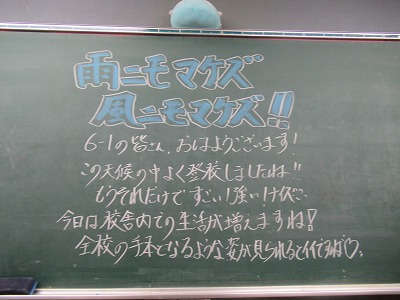 雨ニモマケズ
風ニモマケズ!!
6-1の皆さん、おはようございます!
この天候の中よく登校しましたね!!
もうそれだけですごい!強い!
今日は校舎内での生活が増えますね!
全校の手本となるような姿が見られるとイイですね♡。